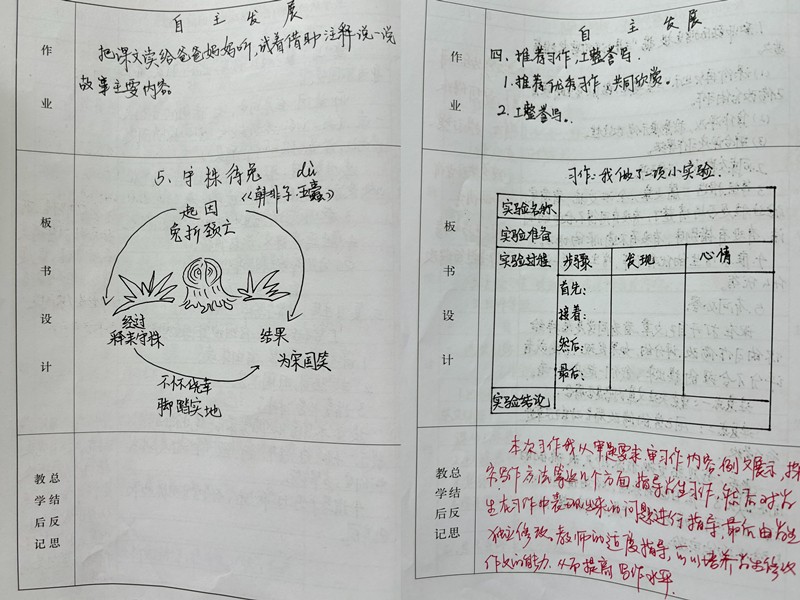 自主发展
作业
把课文读给爸爸妈妈听,试着借助注释说一说
故事主要内容。
板书设计
5、守株待兔
dù
《韩非子·五蠹》
起因
兔折颈亡
经过
释耒守株
结果
为宋国笑
不怀侥幸
脚踏实地
教学后记
总结反思
自主发展
作业
四、推荐习作,工整誊写.
1.推荐优秀习作,共同欣赏。
2.工整誊写。
板书设计
习作:我做了一项小实验.
实验名称
实验准备
实验过程 步骤 发现 心情
首先:
接着:
然后:
最后:
实验结论
教学后记
总结反思
本次习作我从审题要求、审习作内容、例文展示,探
究写作方法等这几个方面指导学生习作,然后对学
生在习作中表现出来的问题进行指导,最后由学生
独立修改。教师的适度指导,可以培养学生修改
作文的能力,从而提高写作水平.